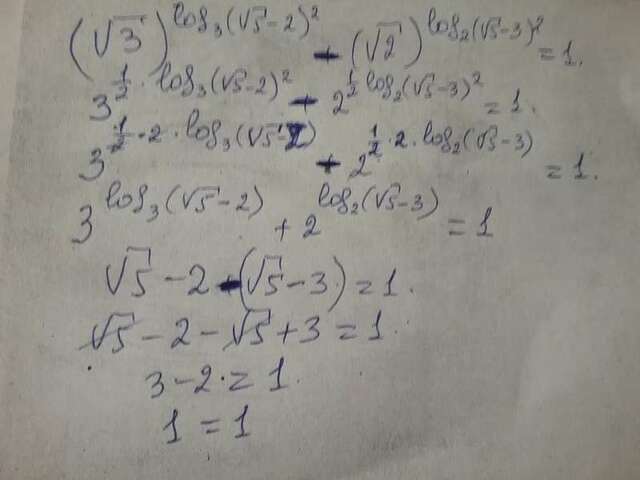 (√3)^log₃(√5-2)² + (√2)^log₂(√5-3)² = 1.
3^½·log₃(√5-2)² + 2^½log₂(√5-3)² = 1.
3^½·2·log₃(√5-2) + 2^½·2·log₂(√5-3) = 1.
3^log₃(√5-2) + 2^log₂(√5-3) = 1
√5-2-(√5-3) = 1.
√5-2-√5+3 = 1.
3-2 = 1.
1 = 1